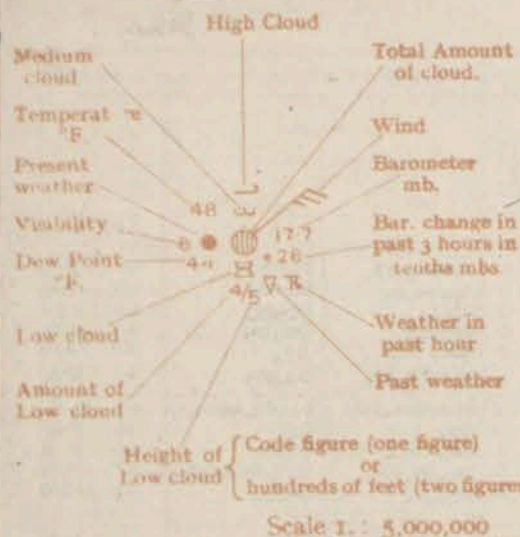 High Cloud
Medium
cloud
Total Amount
of cloud.
Temperat
°F
Wind
Present
weather
Barometer
mb.
48
Visibility
8
17.7
Bar. change in
past 3 hours in
tenths mbs
Dew Point
°F.
26
4/5
Low cloud
Weather in
past hour
Amount of
Low cloud
Past weather
Height of
Low cloud
Code figure (one figure)
or
hundreds of feet (two figures
Scale 1. : 5,000,000